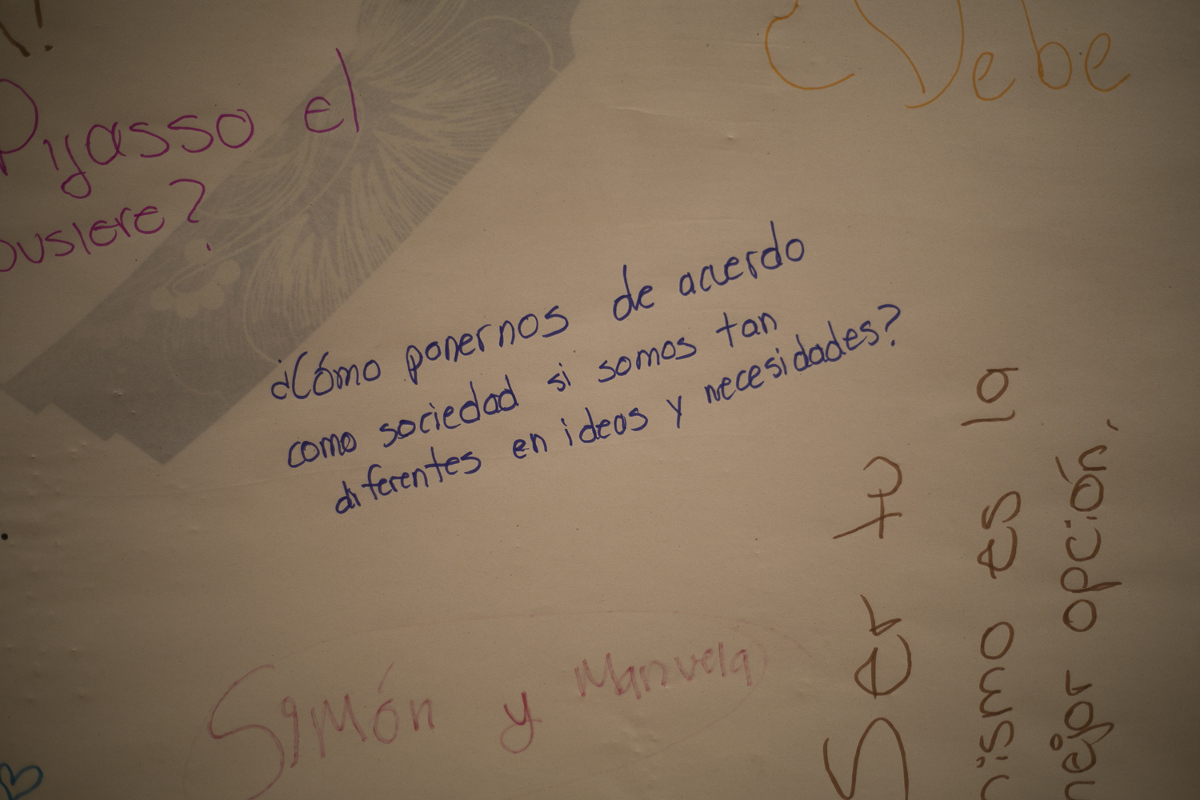 Pijasso el
pusiere?
¿Debe
¿Cómo ponernos de acuerdo
como sociedad si somos tan
diferentes en ideas y necesidades?
Simón y Manuela
Ser tu
mismo es la
mejor opción,